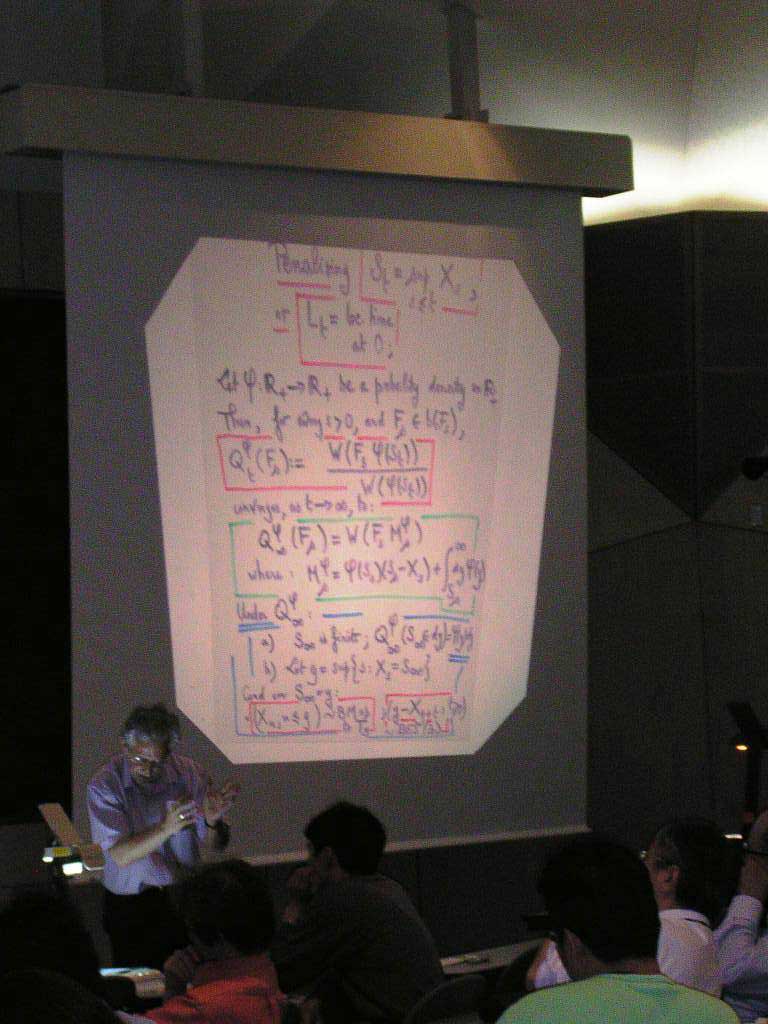 Penalizing S_t = sup X_s,
s≤t
or L_t = loc. time
at 0;
Let φ: R_+ → R_+ be a probability density on R_+
Then, for any s>0, and F_s ∈ b(F_s),
Q_t^φ(F_s) := W(F_s φ(S_t))
W(φ(S_t))
converges, as t→∞, to:
Q_∞^φ(F_s) = W(F_s M_s^φ)
where: M_s^φ = φ(S_s)(S_s - X_s) + ∫_{S_s}^∞ dy φ(y)
Under Q_∞^φ:
a) S_∞ is finite; Q_∞^φ(S_∞ ∈ dy) = φ(y)dy
b) Let g = sup{s: X_s = S_∞}
Cond. on S_∞ = y:
(X_u, u ≤ g)